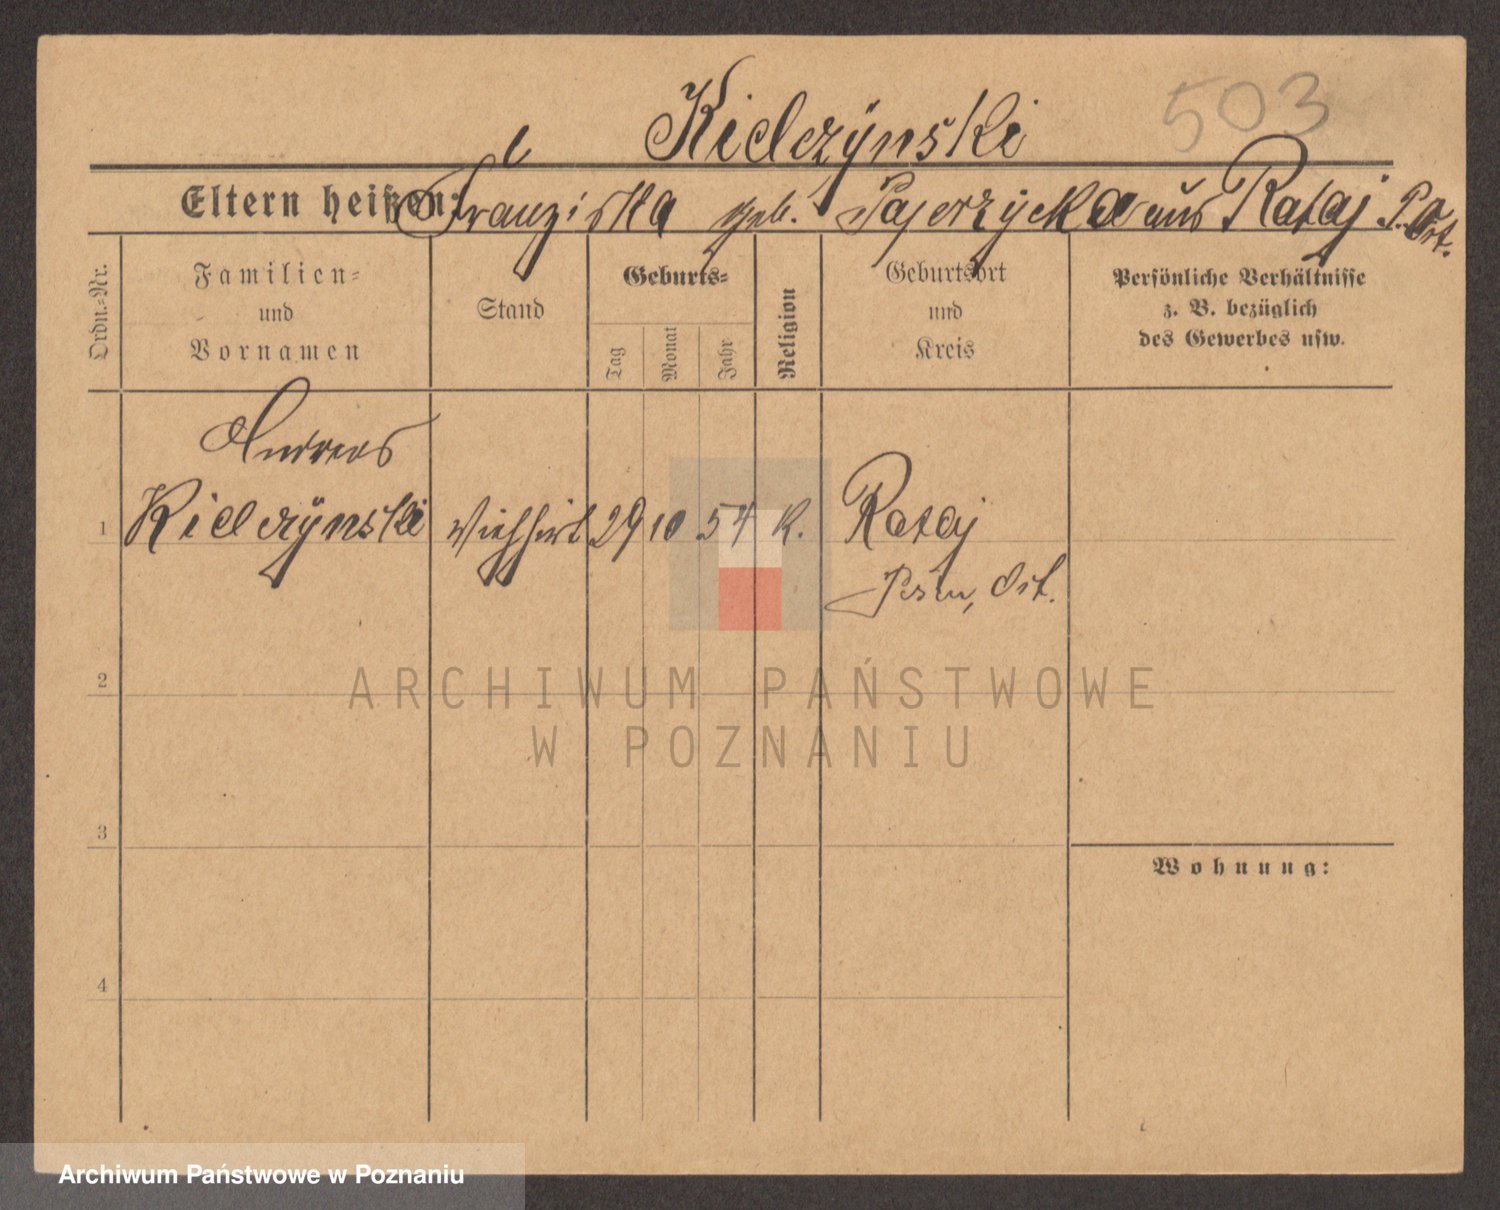 503
Kielczÿnski
Eltern heißen: Franziska geb. Pajerzycka aus Rataj P. Ost.
Ordn.=Nr.
Familien=
und
Vornamen
Stand
Geburts=
Tag
Monat
Jahr
Religion
Geburtsort
und
Kreis
Persönliche Verhältnisse
z. B. bezüglich
des Gewerbes usw.
Andreas
1 Kielczÿnski Viehhirt 29 10 54 K. Rataj
Posen, Ost.
2
ARCHIWUM PAŃSTWOWE
W POZNANIU
3
Wohnung:
4
Archiwum Państwowe w Poznaniu